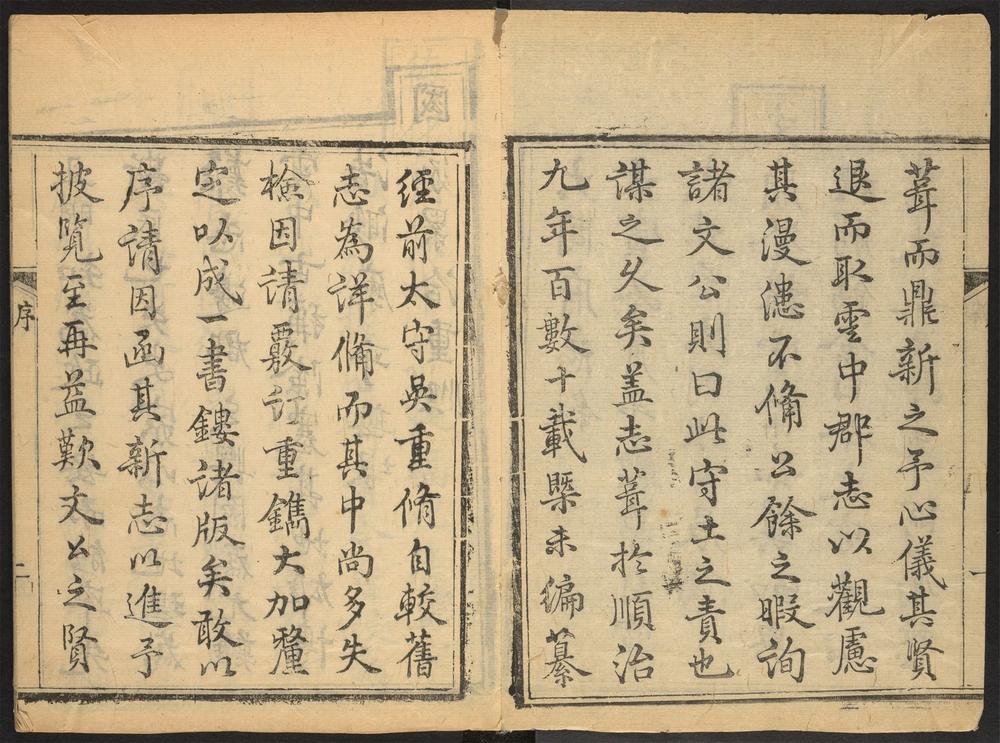 葺而鼎新之予心儀其賢
退而取雲中郡志以觀慮
其漫漶不脩公餘之暇詢
諸文公則曰此守土之責也
謀之久矣盖志葺於順治
九年百數十載槩未編纂
經前太守吳重脩自較舊
志為詳備而其中尚多失
檢因請覈訂重鐫大加釐
定以成一書鏤諸版矣敢以
序請因函其新志以進予
披覽至再益歎文公之賢
序
二